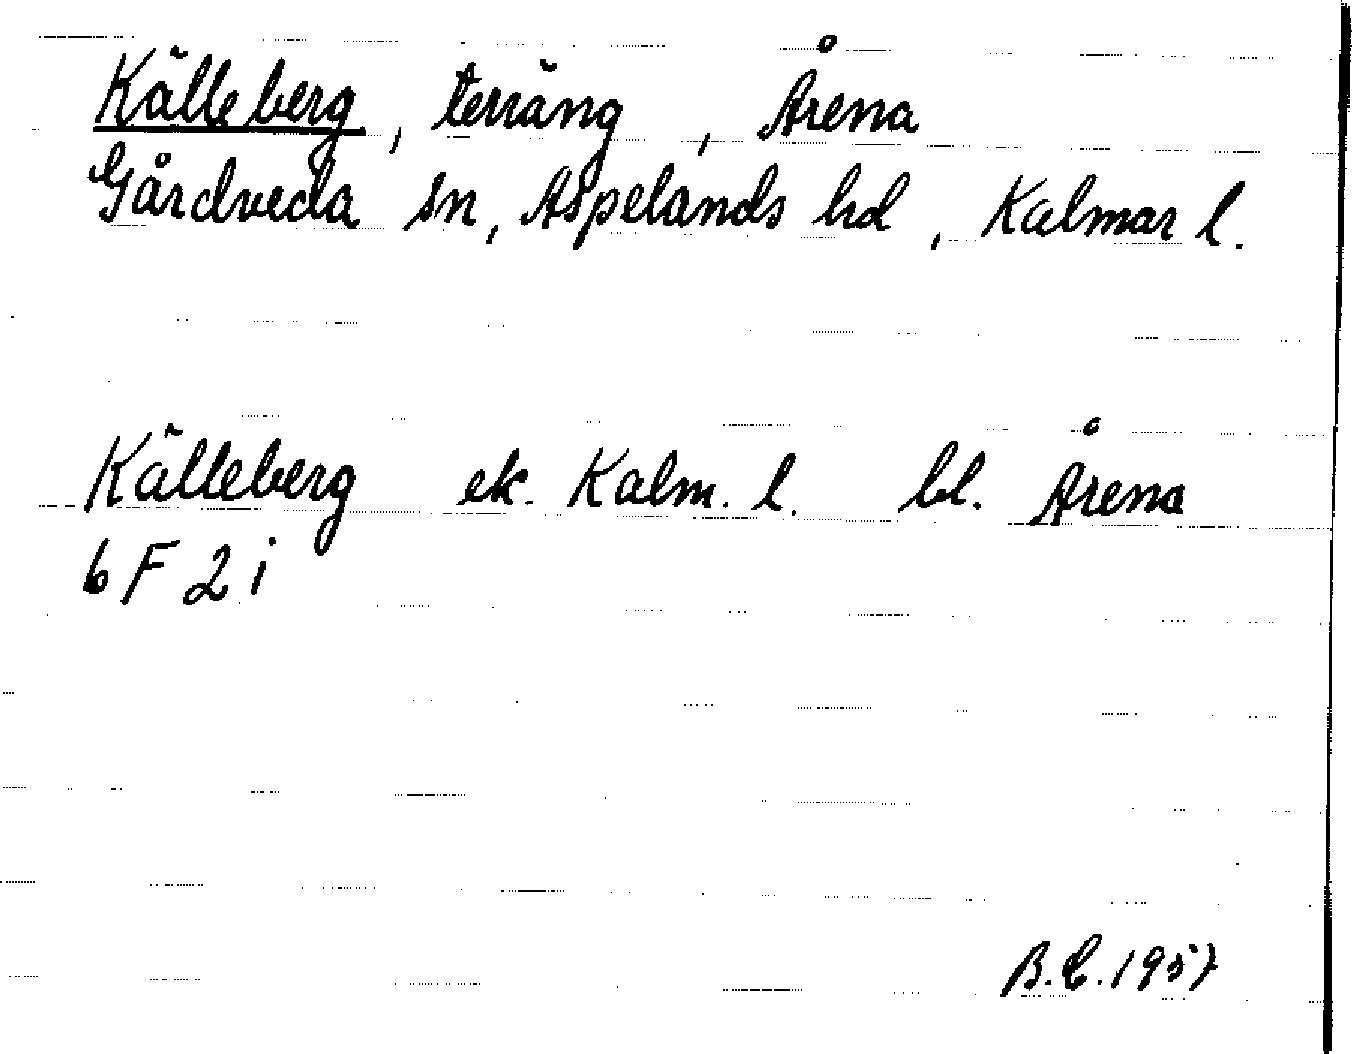 Källeberg, terräng, Årena
Gårdveda sn, Aspelands hd, Kalmar l.
Källeberg ek. Kalm. l. bl. Årena
6 F 2 i
B.C. 1957